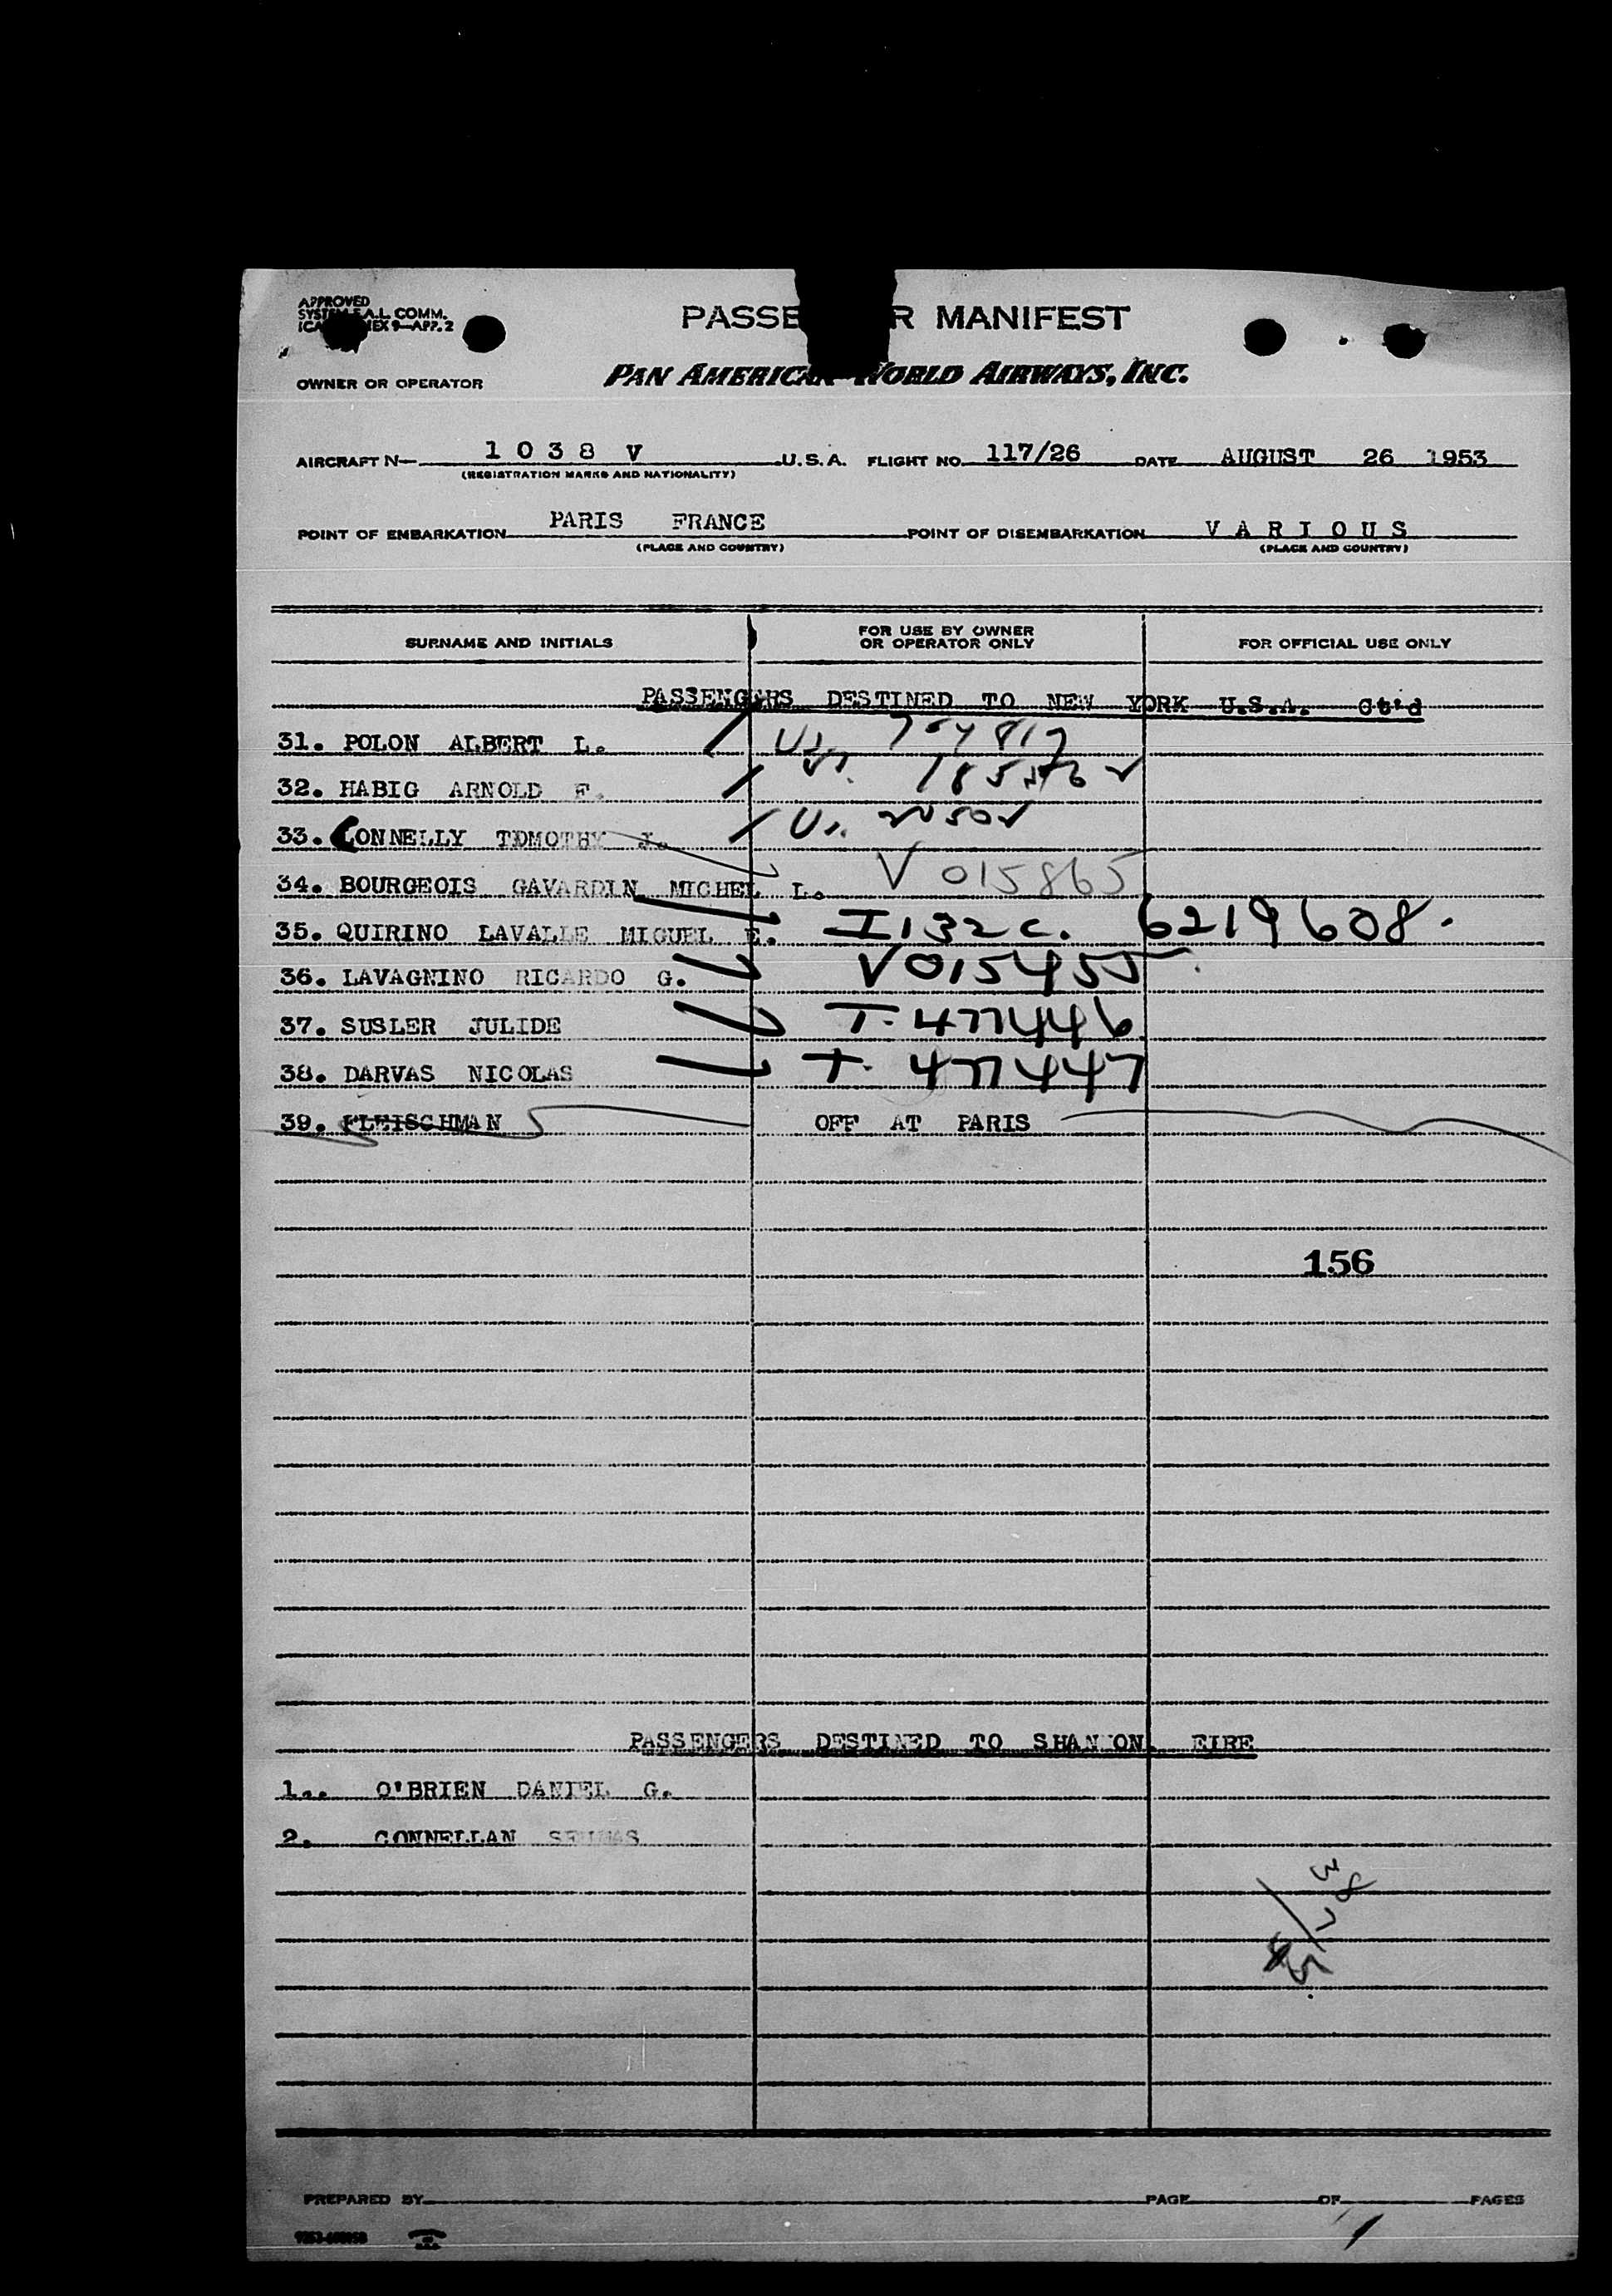 APPROVED
A.L. COMM.
9—APP. 2
PASSE R MANIFEST
OWNER OR OPERATOR
PAN AMERICAN WORLD AIRWAYS, INC.
AIRCRAFT N— 1 0 3 8 V U.S.A. FLIGHT NO. 117/26 DATE AUGUST 26 1953
(REGISTRATION MARKS AND NATIONALITY)
POINT OF EMBARKATION PARIS FRANCE POINT OF DISEMBARKATION V A R I O U S
(PLACE AND COUNTRY) (PLACE AND COUNTRY)
SURNAME AND INITIALS FOR USE BY OWNER OR OPERATOR ONLY FOR OFFICIAL USE ONLY
PASSENGERS DESTINED TO NEW YORK U.S.A. Ct'd
31. POLON ALBERT L.
32. HABIG ARNOLD F.
33. CONNELLY TDMOTHY J.
34. BOURGEOIS GAVARDIN MICHEL L. V 015865
35. QUIRINO LAVALLE MIGUEL E. I 132 C. 6219608.
36. LAVAGNINO RICARDO G. V015455
37. SUSLER JULIDE T. 477446
38. DARVAS NICOLAS T. 477447
39. FLEISCHMAN OFF AT PARIS
156
PASSENGERS DESTINED TO SHANNON EIRE
1.. O'BRIEN DANIEL G.
2. CONNELLAN SEUMAS
38
7
45
PREPARED BY PAGE OF PAGES